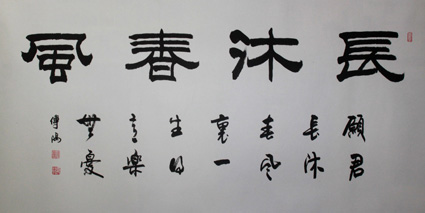 長沐春風
願君
長沐
春風
裏一
生日
喜樂
無憂